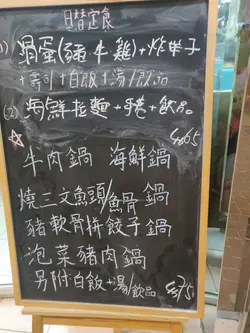 日替定食
(1) 鍋蛋(豬牛雞)+炸餃子
+壽司+白飯+湯
(2) 海鮮拉麵+手卷+飲品
牛肉鍋 海鮮鍋
燒三文魚頭/魚骨鍋
豬軟骨拼餃子鍋
泡菜豬肉鍋
另附白飯+湯/飲品